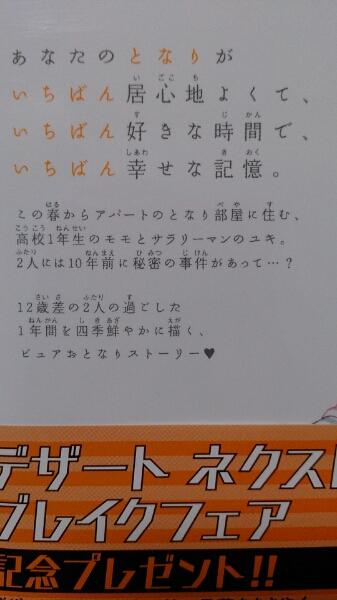 あなたのとなりが
いちばん居心地よくて、
いちばん好きな時間で、
いちばん幸せな記憶。
この春からアパートのとなり部屋に住む、
高校1年生のモモとサラリーマンのユキ。
2人には10年前に秘密の事件があって…?
12歳差の2人の過ごした
1年間を四季鮮やかに描く、
ピュアおとなりストーリー♥
デザート ネクスト
ブレイクフェア
記念プレゼント!!